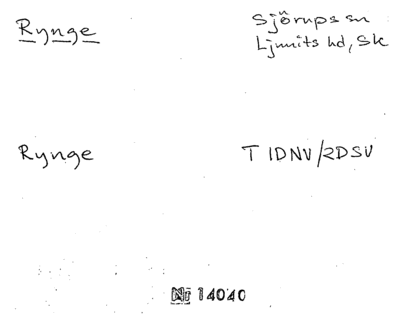 Rynge
Sjörups sn
Ljunits hd, Sk
Rynge
T 1DNV/2DSV
Nr 14040